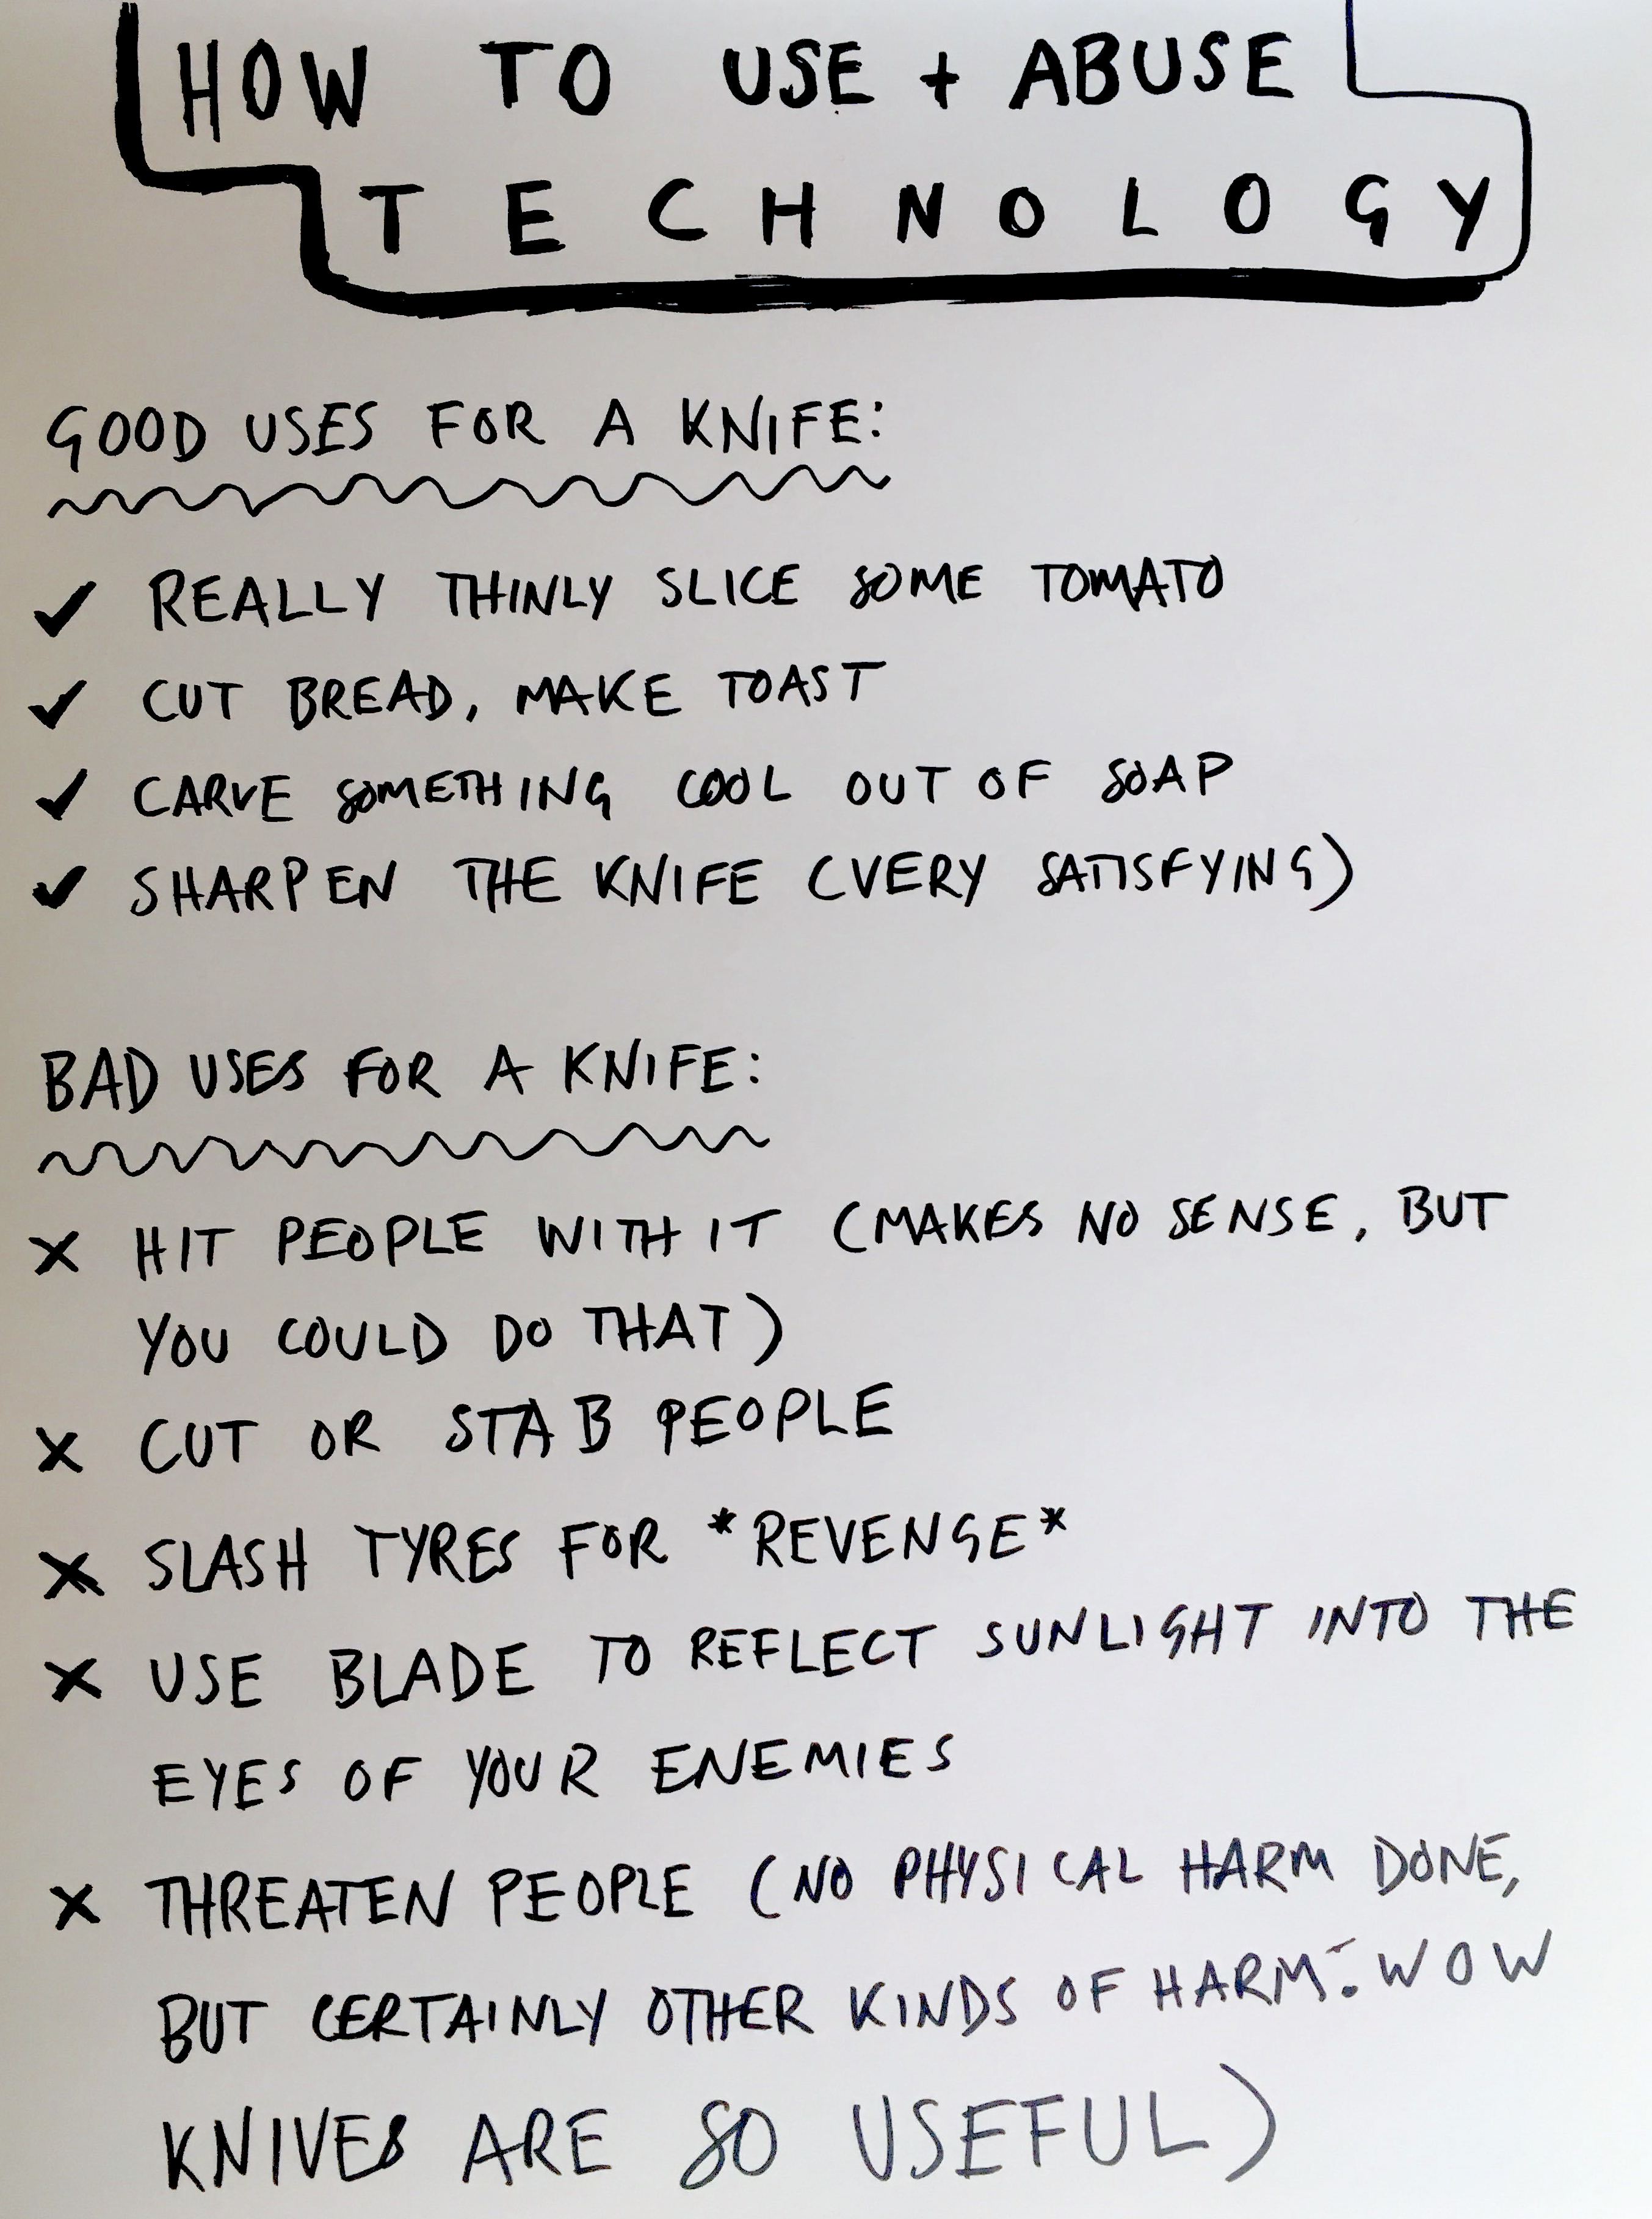 HOW TO USE + ABUSE
TECHNOLOGY
GOOD USES FOR A KNIFE:
✓ REALLY THINLY SLICE SOME TOMATO
✓ CUT BREAD, MAKE TOAST
✓ CARVE SOMETHING COOL OUT OF SOAP
✓ SHARPEN THE KNIFE (VERY SATISFYING)
BAD USES FOR A KNIFE:
× HIT PEOPLE WITH IT (MAKES NO SENSE, BUT
YOU COULD DO THAT)
× CUT OR STAB PEOPLE
× SLASH TYRES FOR *REVENGE*
× USE BLADE TO REFLECT SUNLIGHT INTO THE
EYES OF YOUR ENEMIES
× THREATEN PEOPLE (NO PHYSICAL HARM DONE,
BUT CERTAINLY OTHER KINDS OF HARM. WOW
KNIVES ARE SO USEFUL)